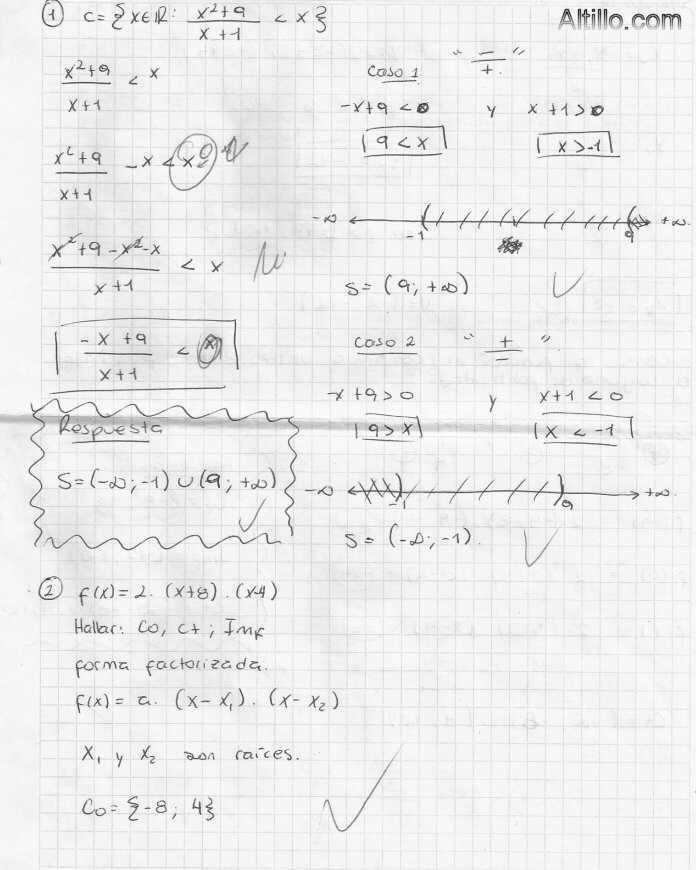 Altillo.com
① C = { x ∈ ℝ : (x² + 9)/(x + 1) < x }
(x² + 9)/(x + 1) < x
(x² + 9)/(x + 1) - x < 0
(x² + 9 - x² - x)/(x + 1) < x
(-x + 9)/(x + 1) <
Respuesta
S = (-∞; -1) ∪ (9; +∞)
Caso 1 " -/+ "
-x + 9 < 0 y x + 1 > 0
9 < x x > -1
-∞ -1 9 +∞
S = (9; +∞)
Caso 2 " +/- "
-x + 9 > 0 y x + 1 < 0
9 > x x < -1
-∞ -1 9 +∞
S = (-∞; -1).
② f(x) = 2. (x+8). (x-4)
Hallar: C0, C+; Imf
forma factorizada.
f(x) = a. (x - x₁). (x - x₂)
X₁ y X₂ son raíces.
C0 = {-8; 4}